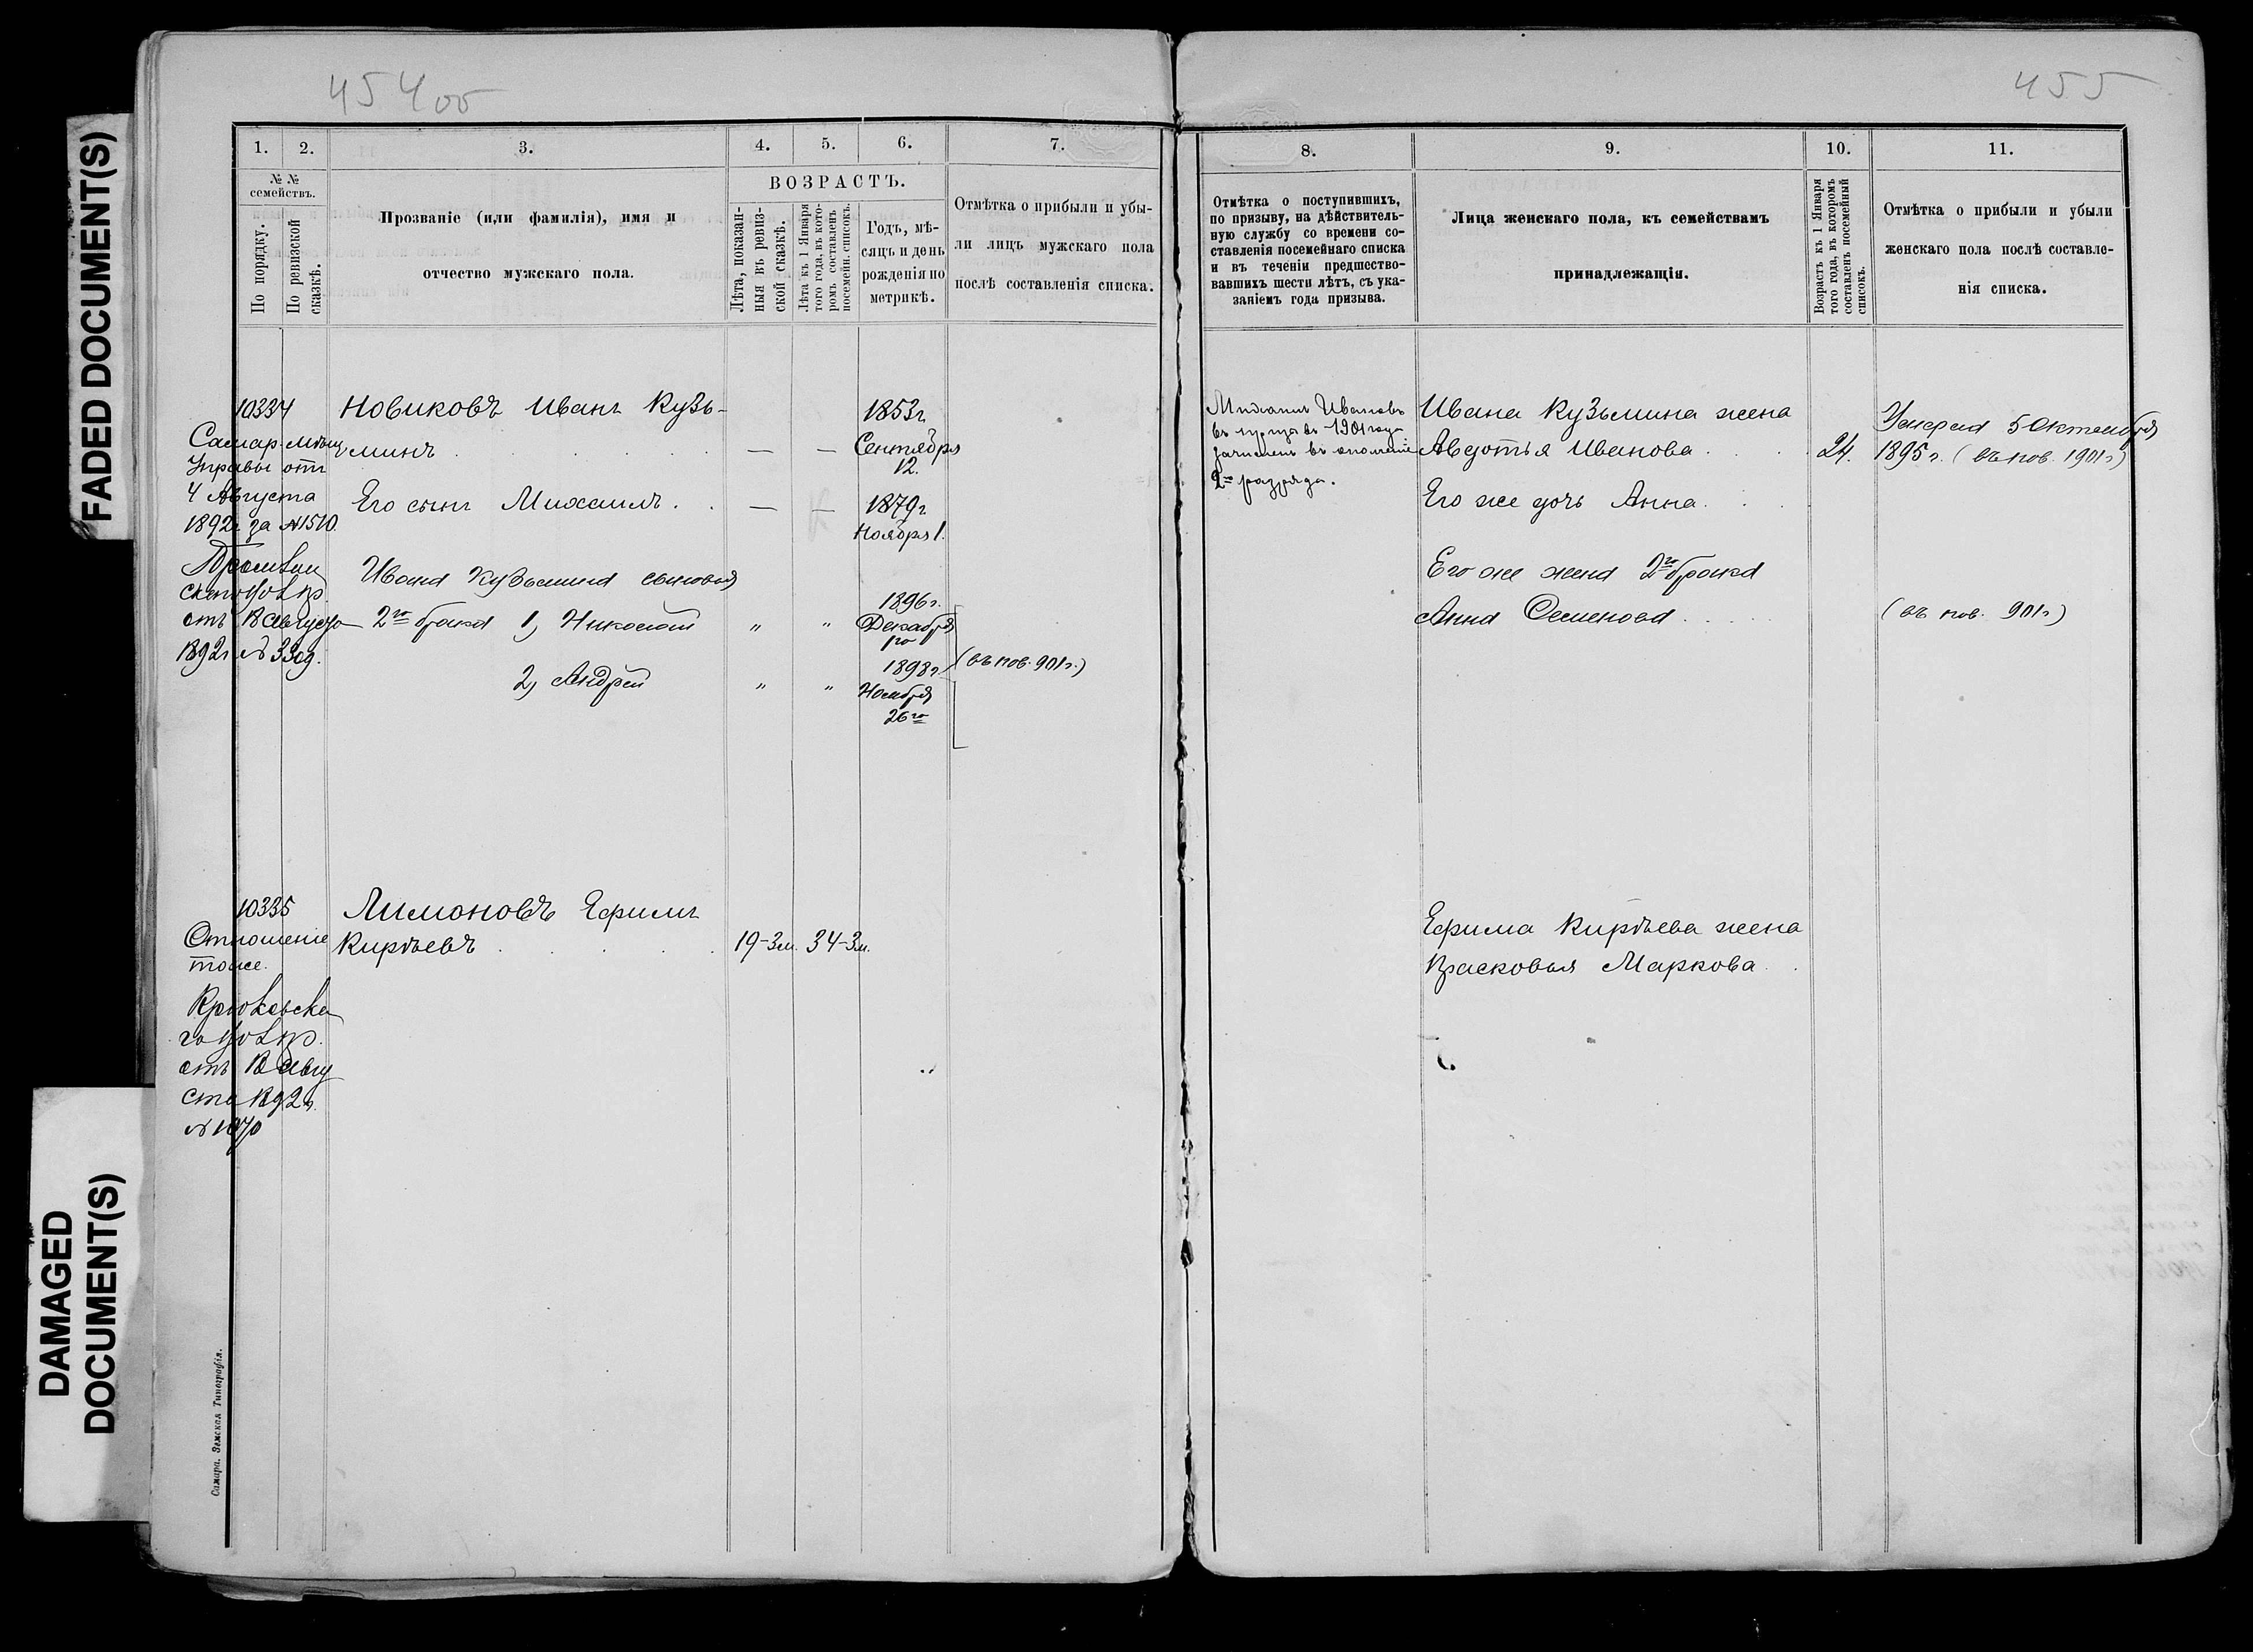 FADED DOCUMENT(S)
DAMAGED
DOCUMENT(S)
454об
1. 2. 3. 4. 5. 6. 7.
№ №
семействъ.
По порядку.
По ревизской
сказкѣ.
Прозваніе (или фамилія), имя и
отчество мужскаго пола.
ВОЗРАСТЪ.
Лѣта, показан-
ныя въ ревиз-
ской сказкѣ.
Лѣта къ 1 Января
того года, въ кото-
ромъ составленъ
посемейн. списокъ.
Годъ, мѣ-
сяцъ и день
рожденія по
метрикѣ.
Отмѣтка о прибыли и убы-
ли лицъ мужскаго пола
послѣ составленія списка.
10334
Самар. Мѣщ
Управы отъ
4 Августа
1892г за №1510.
отъ 18 Августа
1892г № 3309.
Новиковъ Иванъ Кузь-
минъ . . . . — —
1853г
Сентября
12.
Его сынъ Михаилъ . . — —
1879г
Ноября 1.
Ивана Кузьмина сыновья
2го брака 1, Николай " "
1896г.
Декабря
2, Андрей " "
1898г.
Ноября
26го
(въ пов. 901г.)
10335
Отношеніе
тоже.
Крюковска
го Вол. пр.
отъ 18 Авгу
ста 1892г.
№ 1070
Лимоновъ Ефимъ
Кирѣевъ . . . . 19-3м. 34-3м.
Самара. Земская Типографія.
455
8. 9. 10. 11.
Отмѣтка о поступившихъ,
по призыву, на дѣйствитель-
ную службу со времени со-
ставленія посемейнаго списка
и въ теченіи предшество-
вавшихъ шести лѣтъ, съ ука-
заніемъ года призыва.
Лица женскаго пола, къ семействамъ
принадлежащія.
Возрастъ къ 1 Января
того года, въ которомъ
составленъ посемейный
списокъ.
Отмѣтка о прибыли и убыли
женскаго пола послѣ составле-
нія списка.
Михаилъ Ивановъ
въ призывъ 1901 года
зачисленъ въ ополченіе
2го разряда.
Ивана Кузьмина жена
Авдотья Иванова . . . 24.
Умерла 5 Октября
1895г. (въ пов. 1901г)
Его же дочь Анна . . .
Его же жена 2го брака
Анна Семенова . . . . .
(въ пов. 901г)
Ефима Кирѣева жена
Прасковья Маркова . .